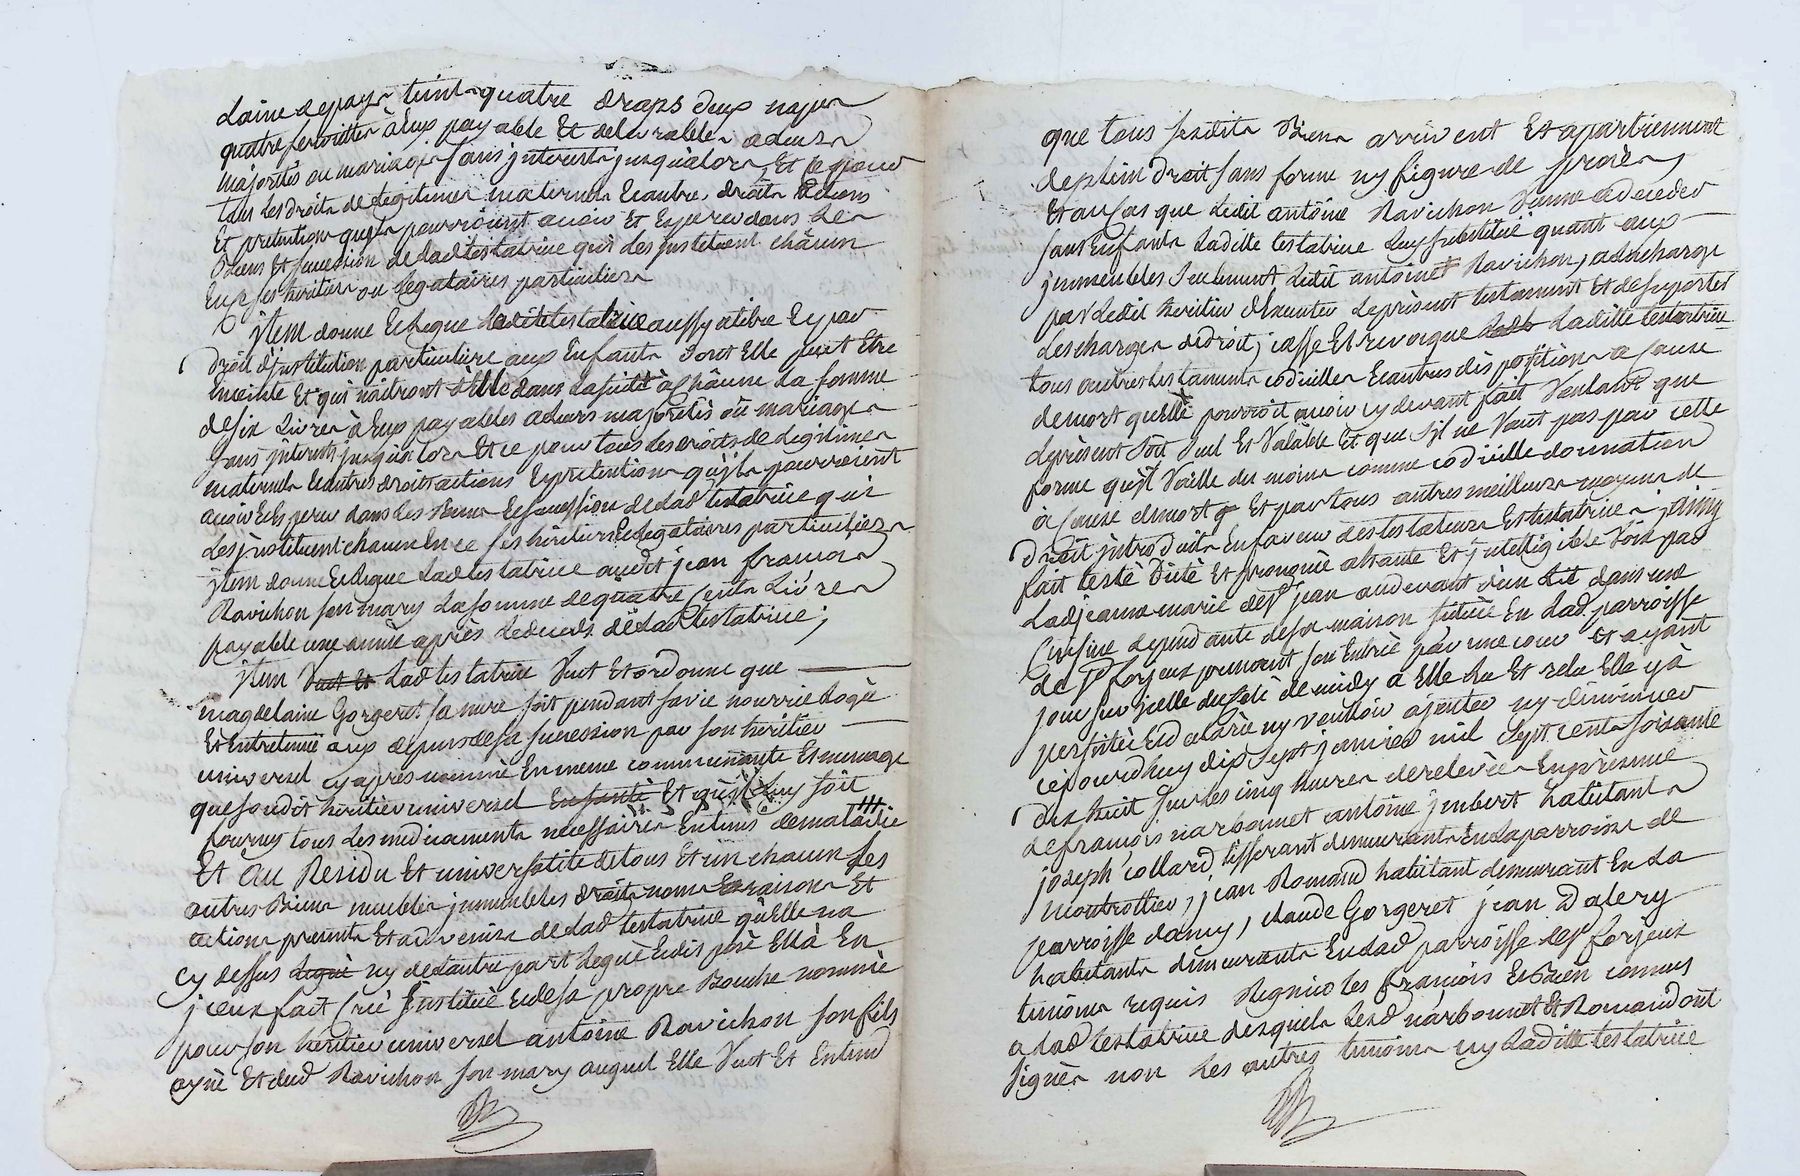 Laine de pays teint quatre draps deux napes
quatre serviettes à Eux payable Et delivrables a leurs
majorités ou mariages sans jnterests jusqu'alors, Et ce pour
tous les droits de legitimes maternels Ecautres, droits actions
Et pretentions quils pourroient avoir Et Esperer dans les
Biens Et succession de lad testatrice qu'i les jnstituent châcun
Eux ses heritiers ou legataires particuliers
jtem donne Eclegue Laditte testatrice aussy atitre Ex par
droit d'jnstitution particulière aux Enfants dont Elle peut Etre
Enceinte Et qui naitront d'Elle dans La suitte à Châcun la somme
de six Livres à Eux payables a leurs majorités ou mariages
sans jnterests jusqu'alors Et ce pour tous les droits de legitimes
maternels Ecautres droits actions Expretentions qu'jls pourroient
avoir Ecesperer dans les Biens Ecsuccession de lad testatrice qu'i
Les jnstituent chacun En ce ses heritiers Eclegataires particuliers
jtem donne Eclegue Lad testatrice audit jean francois
Ravichon son mary La somme de quatre Cents Livres
payable une année après Le deceds de Lad testatrice;
jtem Veut Et Lad testatrice Veut Et ordonne que
magdelaine Gorgeret sa mere soit pendant sa vie nourrie Logée
Et Entretenue aux depens de sa succession par son heritier
universel cy après nommé En meme communauté Et menage
que sondit heritier universel Et qu'jl Luy soit
fourny tous les medicaments necessaires En tems de maladie
Et Au Residu Et universalité de tous Et un chacun ses
autres Biens meubles jmmeubles droits noms Et raisons Et
actions presents Et advenirs de Lad testatrice qu'Elle n'a
cy dessus legué ny de dautre part Legué Ecdisposé Ella En
jceux fait Crée Jnstitué Ecde sa propre Bouche nommé
pour son heritier universel antoine Ravichon son fils
ayné Et dud Ravichon son mary auquel Elle Veut Et Entend
que tous sesdits Biens arrivent Et apartiennent
de plein droit sans forme ny figure de procès,
Et au Cas que Ledit antoine Ravichon Vienne a deceder
sans Enfants Laditte testatrice Luy substitue quant aux
jmmeubles seulement Ledit antoine Ravichon, a la charge
par Ledit heritier d'Executer Le present testament Et de suporter
Les charges de droit, casse Et revoque Laditte testatrice
tous autres testaments codicilles Ecautres dispositions a Cause
de mort qu'elle pourroit avoir cy devant fait Voulant que
le present soit seul Et Valable Et que s'jl ne Vaut pas par cette
forme qu'jl Vaille du moins comme codicille donnation
à Cause de mort Et par tous autres meilleurs moyens de
Droit jntroduits En faveur des testateurs Et testatrices ainsy
fait testé Dicté Et prononcé a haute Et jntelligible Voix par
Lad jeanne marie de st jean au devant d'un Lit dans une
Cuisine dependante de sa maison située En Lad parroisse
de st forjeux prenant son Entrée par une cour et ayant
jour sur jcelle du Coté de midy a Elle Lu Et relu Elle y a
persisté Ec declaré ny vouloir ajouter ny diminuer
cejourd'huy dix sept janvier mil sept cents soixante
dix huit sur les cinq heures de relevée En presence
de francois narbonnet antoine jmbert habitants
joseph Collard tisserant demeurants En la parroisse de
montrottier, jean Romand habitant demeurant En la
parroisse dancy, claude Gorgeret jean Dalery
habitants demeurants En Lad parroisse de st forjeux
temoins requis Regnicoles francois Ec Bien connus
a Lad testatrice desquels Lesd narbonnet Et Romand ont
signés non les autres temoins ny Laditte testatrice